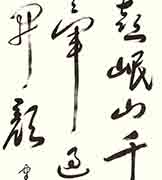 喜岷山千
三軍過
開顏